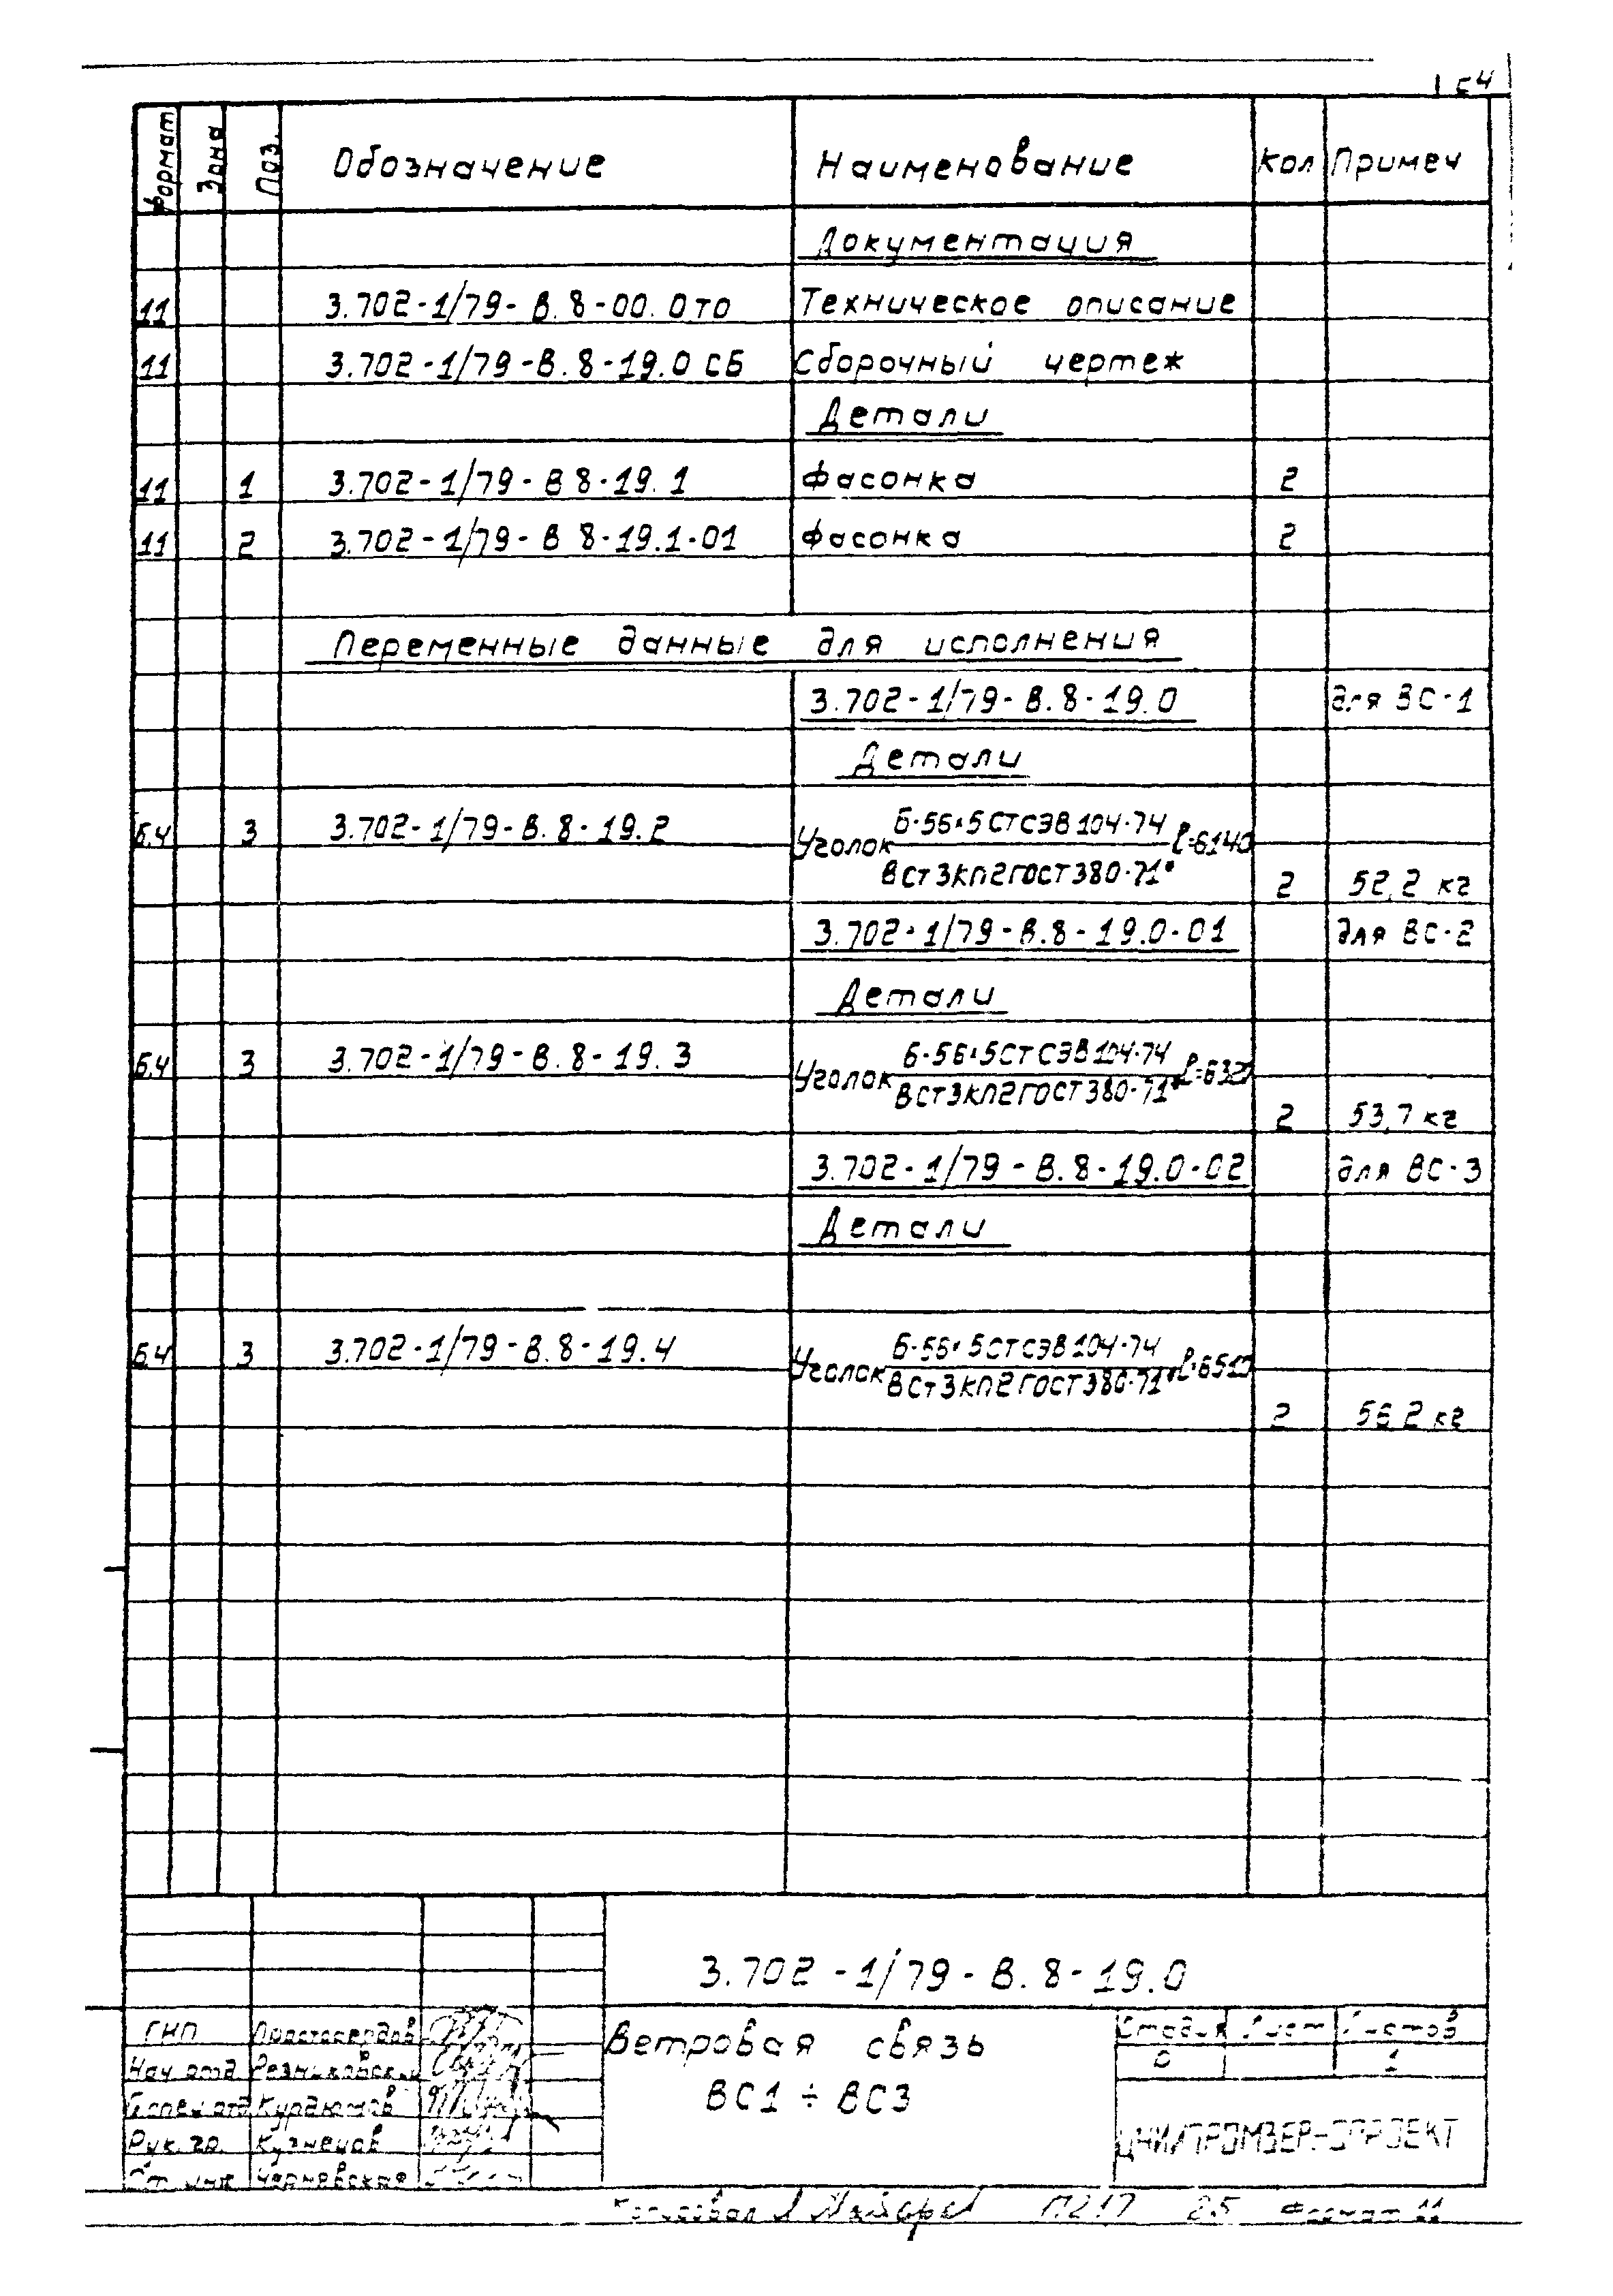 Формат Зона Поз. Обозначение Наименование Кол Примеч
Документация
11 3.702-1/79-В.8-00.0ТО Техническое описание
11 3.702-1/79-В.8-19.0 СБ Сборочный чертеж
Детали
11 1 3.702-1/79-В 8-19.1 Фасонка 2
11 2 3.702-1/79-В 8-19.1-01 Фасонка 2
Переменные данные для исполнения
3.702-1/79-В.8-19.0 для ВС-1
Детали
Б.Ч 3 3.702-1/79-В.8-19.2 Уголок Б-56×5 СТ СЭВ 104-74 ℓ=6140
ВСт3кп2 ГОСТ 380-71* 2 52,2 кг
3.702-1/79-В.8-19.0-01 для ВС-2
Детали
Б.Ч 3 3.702-1/79-В.8-19.3 Уголок Б-56×5 СТ СЭВ 104-74
ВСт3кп2 ГОСТ 380-71* 2 53,7 кг
3.702-1/79-В.8-19.0-02 для ВС-3
Детали
БЧ 3 3.702-1/79-В.8-19.4 Уголок Б-56×5 СТ СЭВ 104-74
ВСт3кп2 ГОСТ 380-71* 2 56,2 кг
3.702-1/79-В.8-19.0
Ветровая связь
ВС1 ÷ ВС3
Стадия Лист Листов
Р 1
ГИП
Нач отд
Курдюмов
Рук. гр. Кузнецов
Ст. инж Чернявская
ЦНИИПРОМЗЕРНОПРОЕКТ
Копировал Формат 11